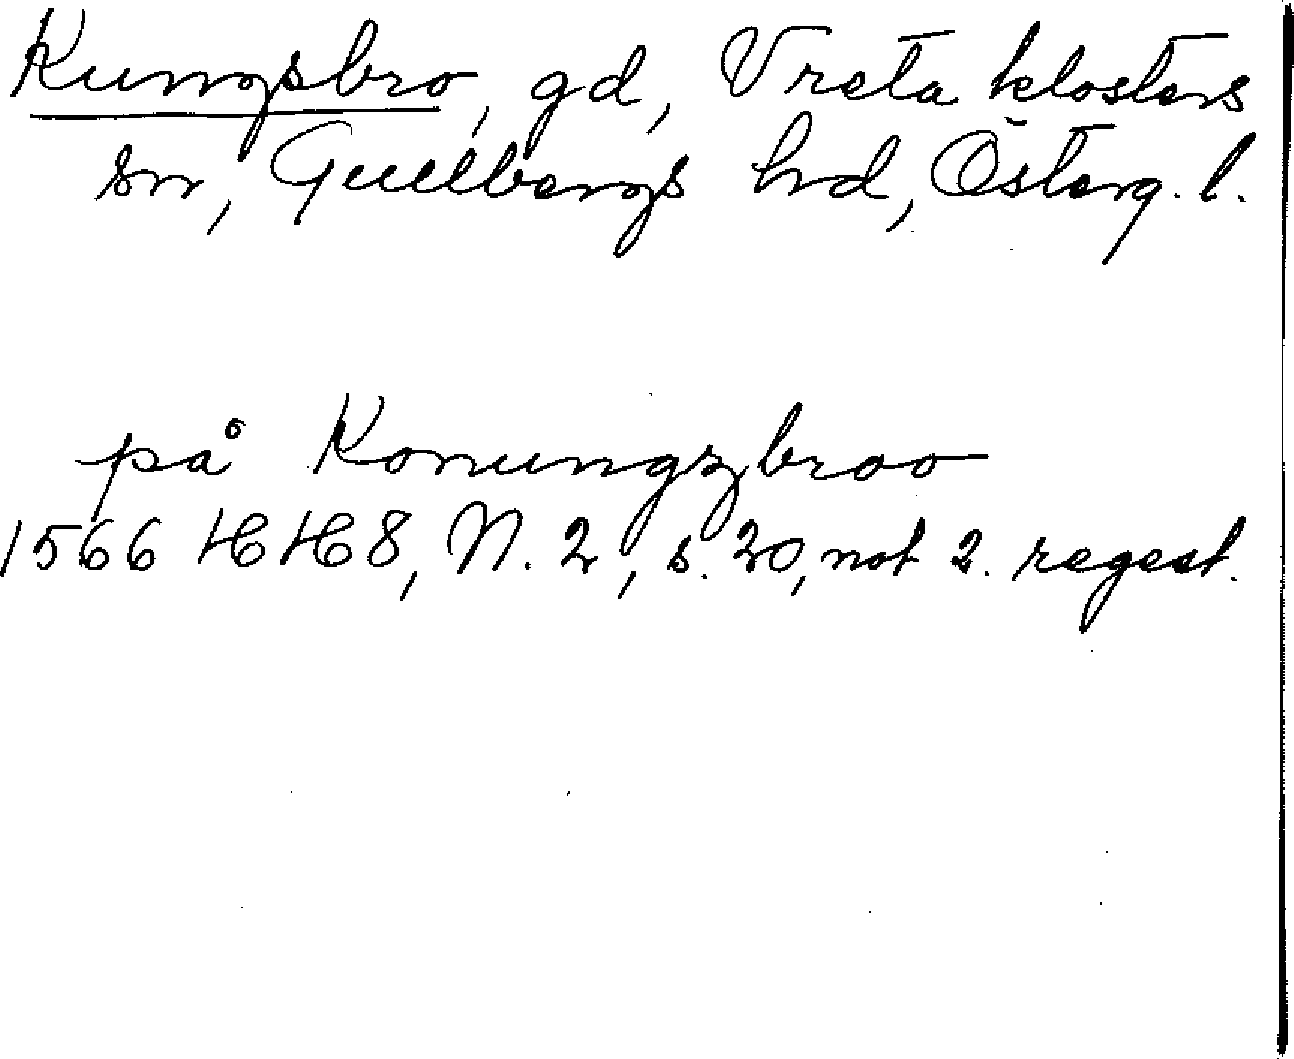 Kungsbro, gd, Vreta klosters
sn, Gullbergs hd, Österg. l.
på Konungzbroo
1566 HH 8, N. 2, s. 20, not 2. regest.